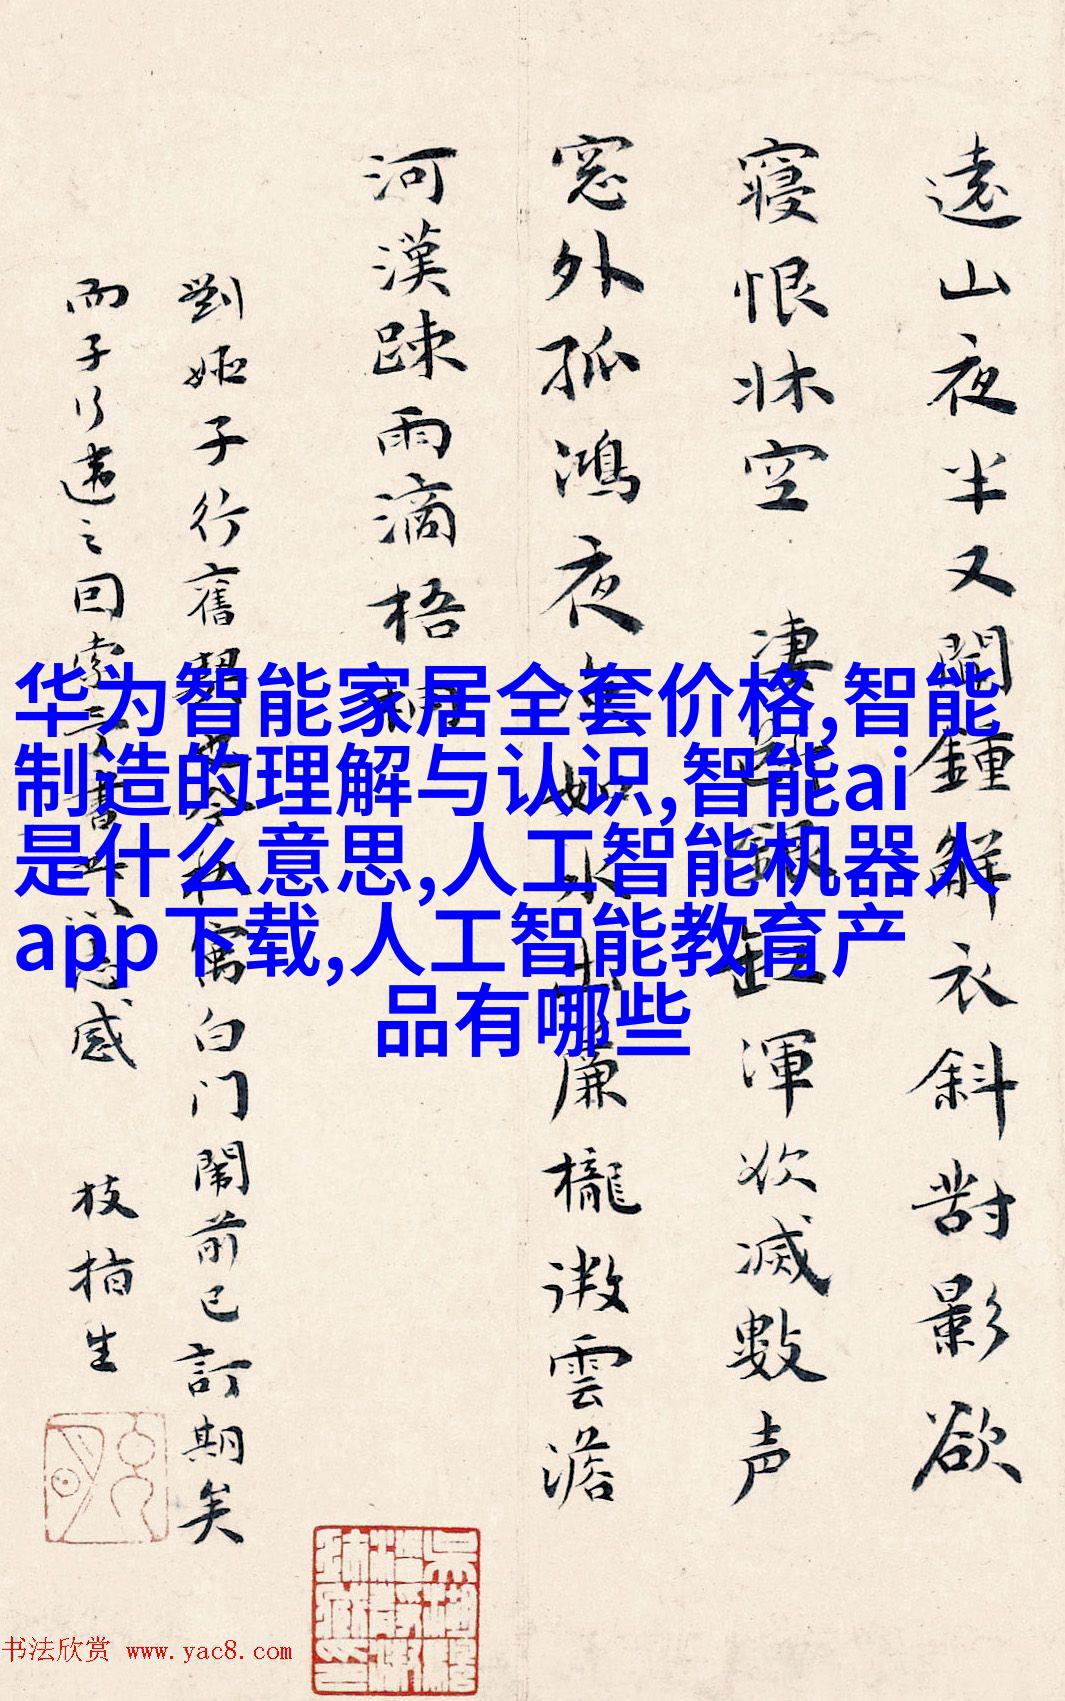 遠山夜半又聞鍾解衣斜對影欲
寢恨牀空 凄迷銀缸渾欲滅數声
窓外孤鴻夜涼如水小廉櫳微雲澹
河漢踈雨滴梧桐
劉姬子行舊
寓白门鬧前已訂期矣
而子行違之回索
感 枝指生
华为智能家居全套价格,智能
制造的理解与认识,智能ai
是什么意思,人工智能机器人
app下载,人工智能教育产
品有哪些
书法欣赏 www.yac8.com